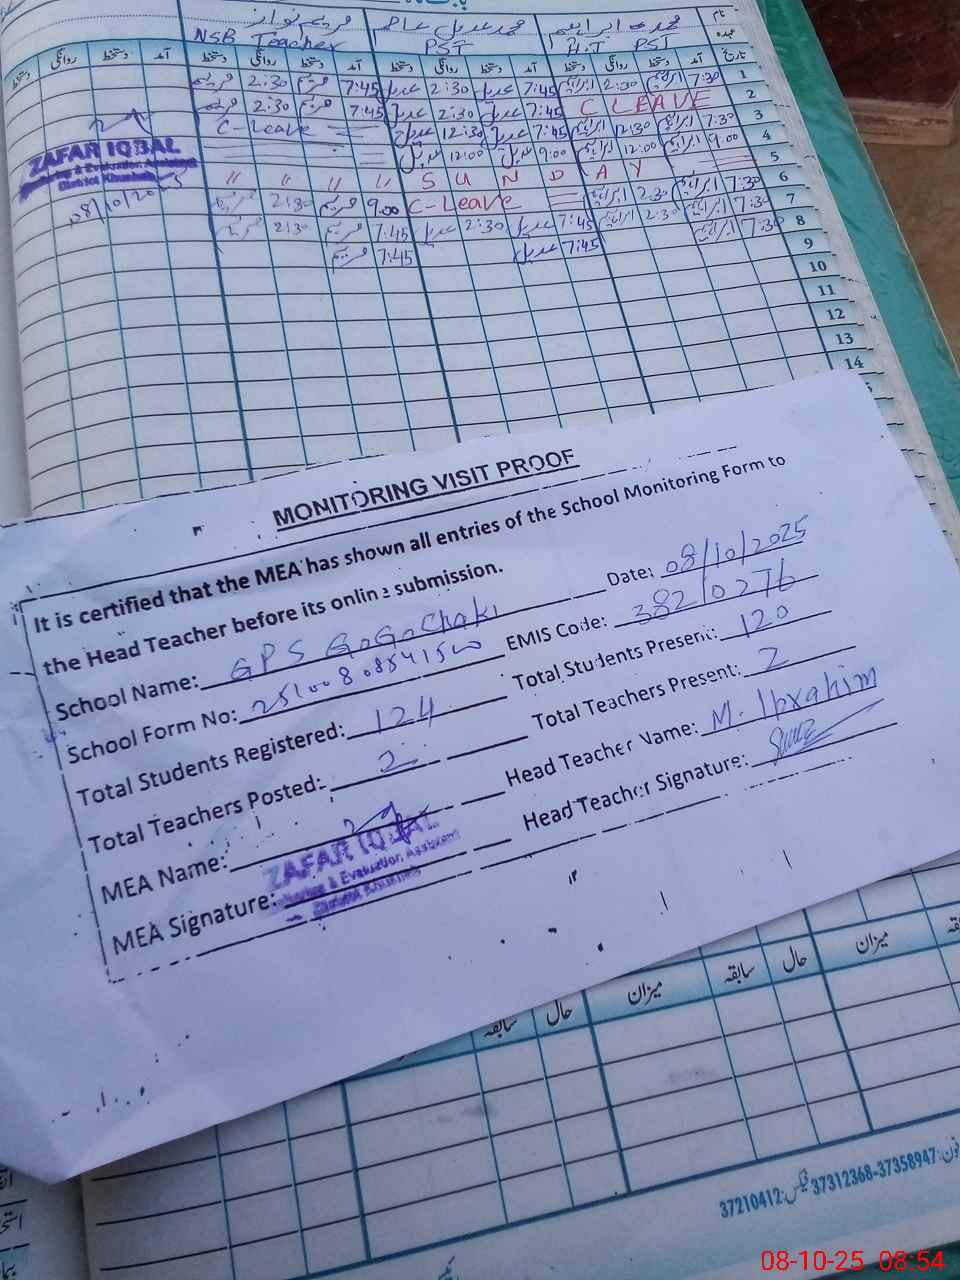 نام محمد ابراہیم محمد عدیل مریم نواز
عہدہ H.T PST PST NSB Teacher
تاریخ آمد دستخط روانگی دستخط آمد دستخط روانگی دستخط آمد دستخط روانگی دستخط آمد دستخط روانگی دستخط
1 7:30 ابراہیم 2:30 ابراہیم 7:45 عدیل 2:30 عدیل 7:45 مریم 2:30 مریم
2 C LEAVE 7:45 عدیل 2:30 عدیل 7:45 مریم 2:30 مریم
3 7:30 ابراہیم 2:30 ابراہیم 7:45 عدیل 12:30 عدیل C-Leave
4 9:00 ابراہیم 12:00 ابراہیم 9:00 عدیل 12:00 عدیل
5 S U N D A Y " " " "
6 7:30 ابراہیم 2:30 ابراہیم C-Leave 9:00 مریم 2:30 مریم
7 7:30 ابراہیم 2:30 ابراہیم 7:45 عدیل 2:30 عدیل 7:45 مریم 2:30 مریم
8 7:30 ابراہیم 7:45 عدیل 7:45 مریم
9
10
11
12
13
14
ZAFAR IQBAL
Monitoring & Evaluation Assistant
District Khushab
08/10/2025
MONITORING VISIT PROOF
It is certified that the MEA has shown all entries of the School Monitoring Form to
the Head Teacher before its online submission.
Date: 08/10/2025
School Name: GPS GoGoChaki
EMIS Code: 38210276
School Form No: 251008088541500
Total Students Present: 120
Total Students Registered: 124
Total Teachers Present: 2
Total Teachers Posted: 2
Head Teacher Name: M. Ibrahim
MEA Name:
Head Teacher Signature:
MEA Signature:
ZAFAR IQBAL
Monitoring & Evaluation Assistant
District Khushab
میزان حال سابقہ میزان حال سابقہ
فون:37358947-37312368 فیکس:37210412
08-10-25 08:54